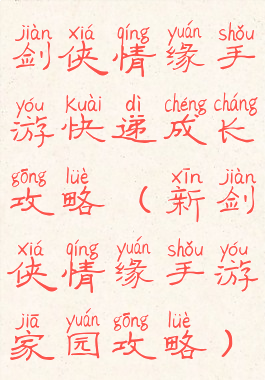 jiàn xiá qíng yuán shǒu
剑侠情缘手
yóu kuài dì chéng cháng
游快递成长
gōng lüè xīn jiàn
攻略（新剑
xiá qíng yuán shǒu yóu
侠情缘手游
jiā yuán gōng lüè
家园攻略）